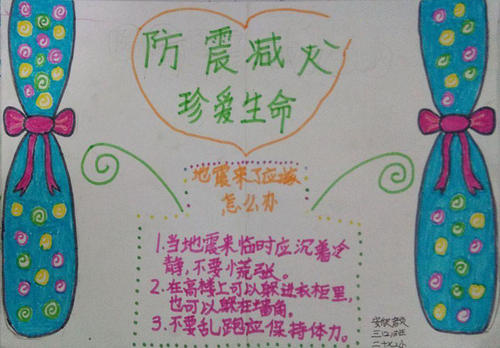 防震减灾
珍爱生命
地震来了应该
怎么办
1.当地震来临时应沉着冷
静,不要慌张。
2.在高楼上可以躲进衣柜里,
也可以躲在墙角。
3.不要乱跑应保持体力。